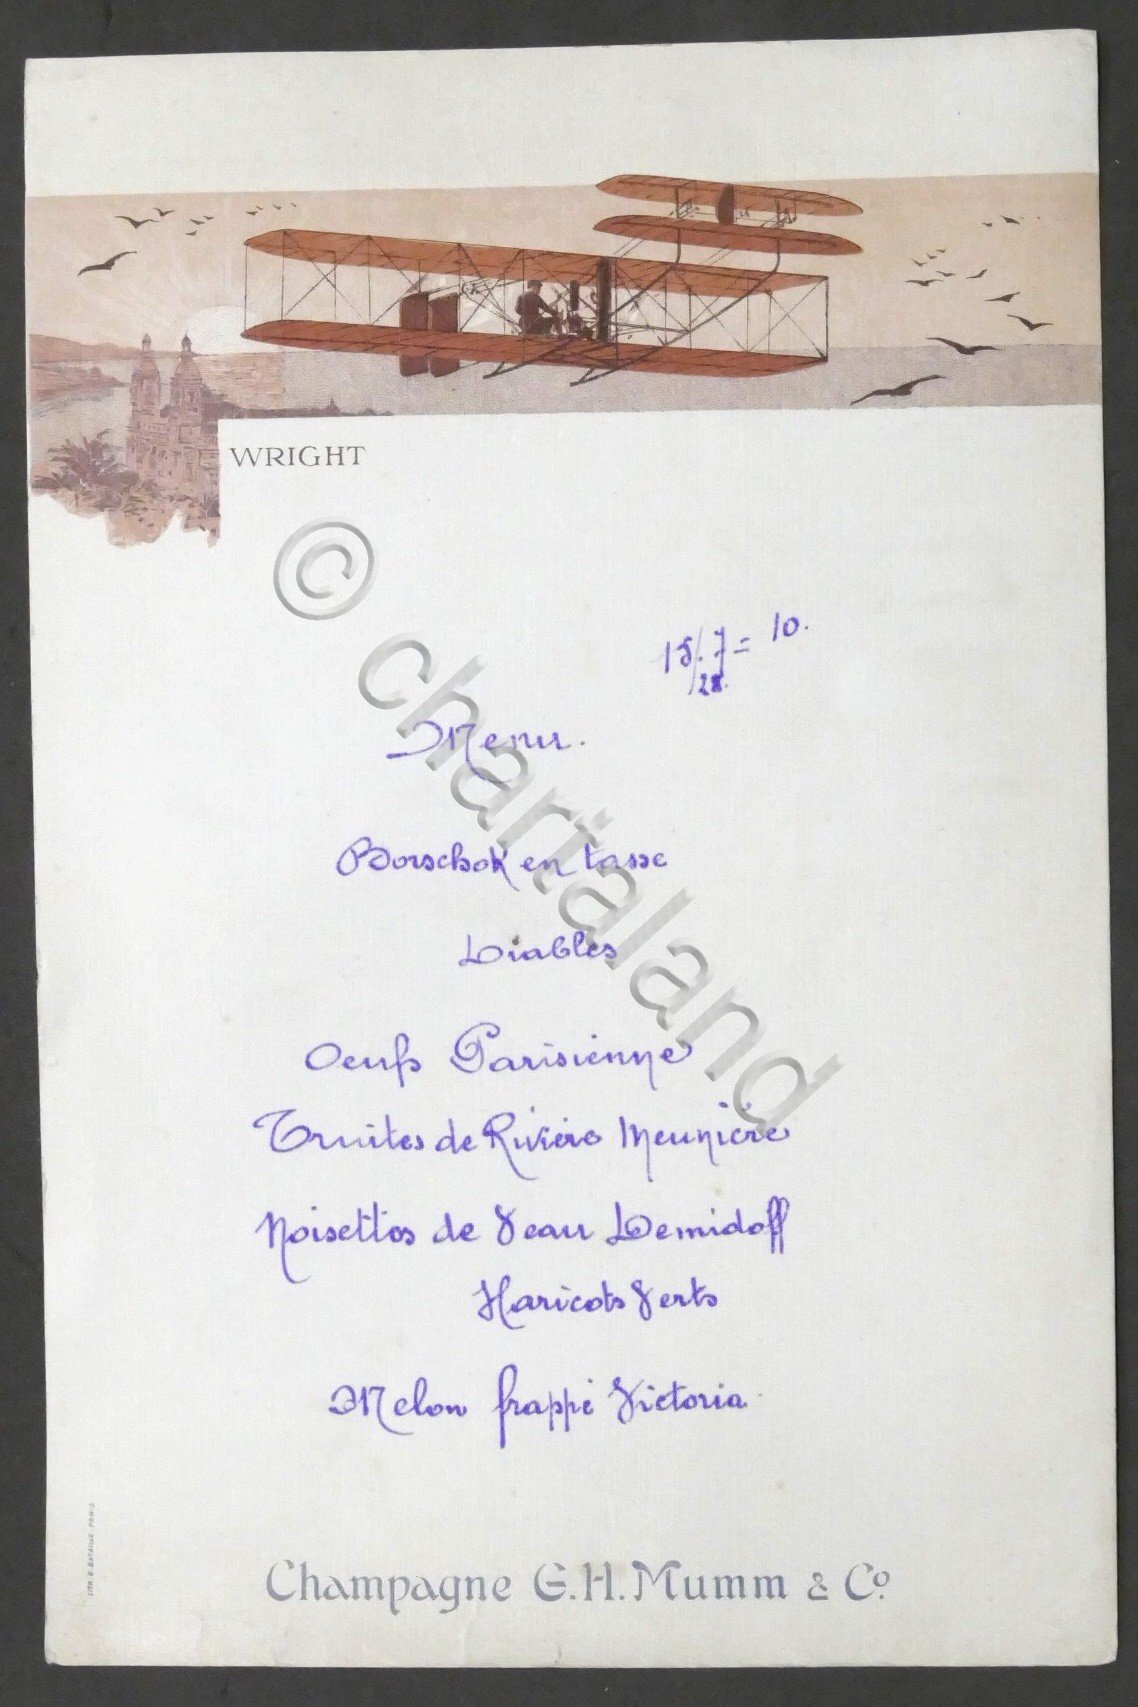 WRIGHT
15/.7= 10.
28.
Menu.
Borschok en tasse
Diables
Oeufs Parisienne
Truites de Rivière Meunière
Noisettes de Veau Demidoff
Haricots Verts
Melon frappé Victoria.
Champagne G.H. Mumm & Co.
© chartaland